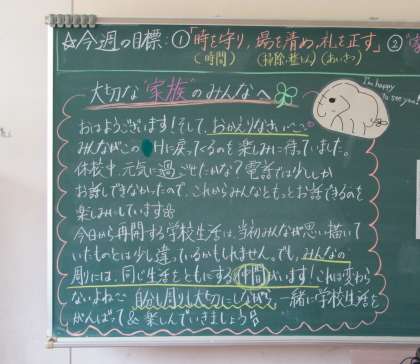 ☆今週の目標：①「時を守り、場を清め、礼を正す」②
（時間）（掃除・整とん）（あいさつ）
大切な"家族"のみんなへ
I'm happy
to see you!
おはようございます！そして、おかえりなさい〜♡
みんながこの　日に戻ってくるのを楽しみに待っていました。
休校中、元気に過ごせたかな？電話では少ししか
お話しできなかったので、これからみんなともっとお話できるのを
楽しみにしています
今日から再開する学校生活は、当初みんなが思い描いて
いたものとは少し違っているかもしれません。でも、みんなの
周りには、同じ生活をともにする仲間がいます！これは変わら
ないよね〜 自分も周りも大切にしながら、一緒に学校生活を
がんばって＆楽しんでいきましょう